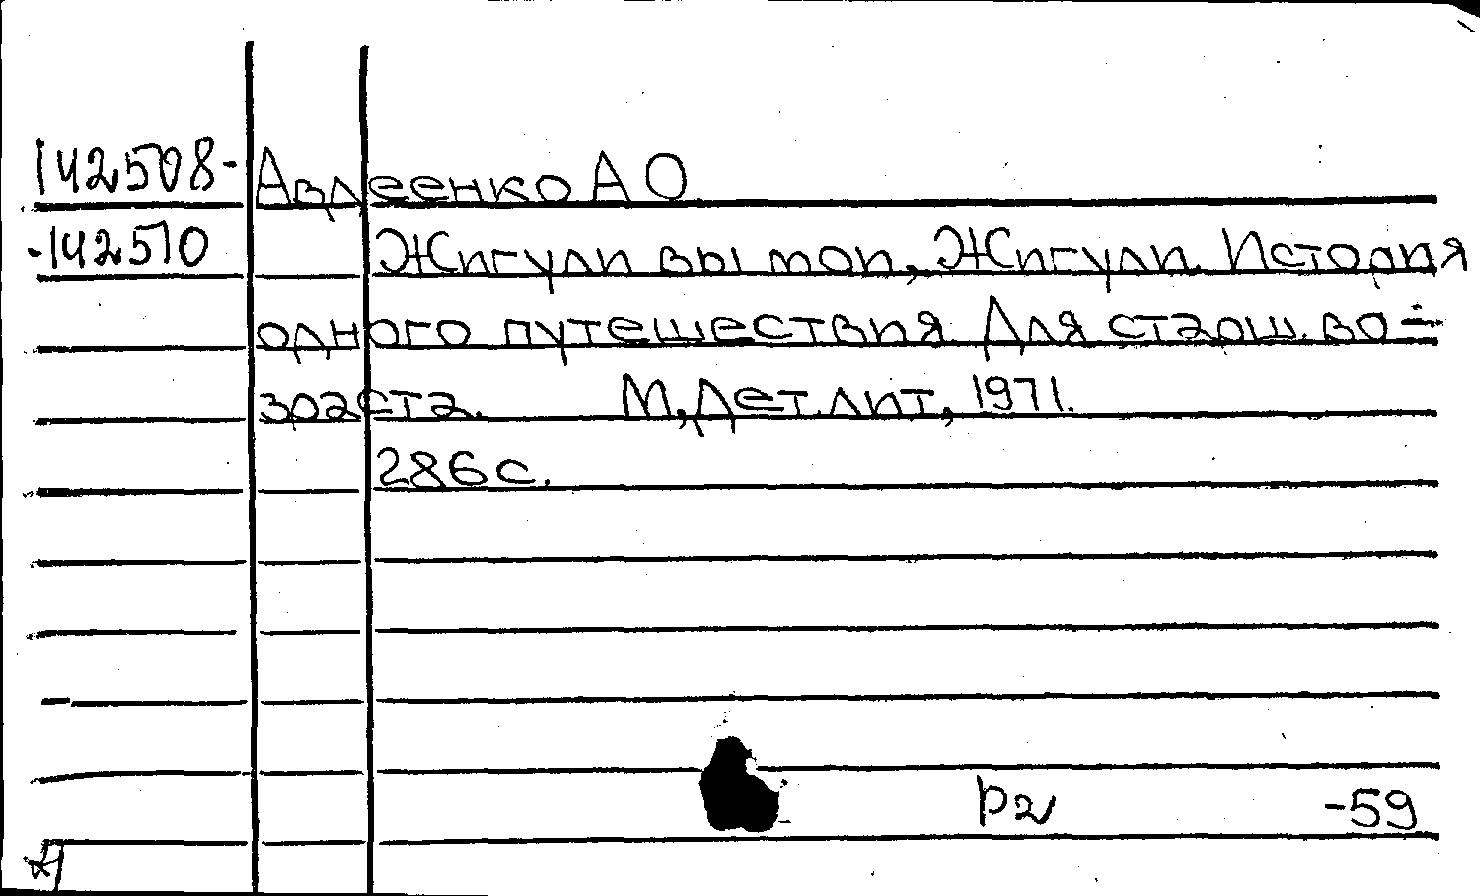 142508- Авдеенко А О
-142510 Жигули вы мои, Жигули. История
одного путешествия. Для старш. во-
зраста. М, Дет. лит, 1971.
286 с.
Р2 -59